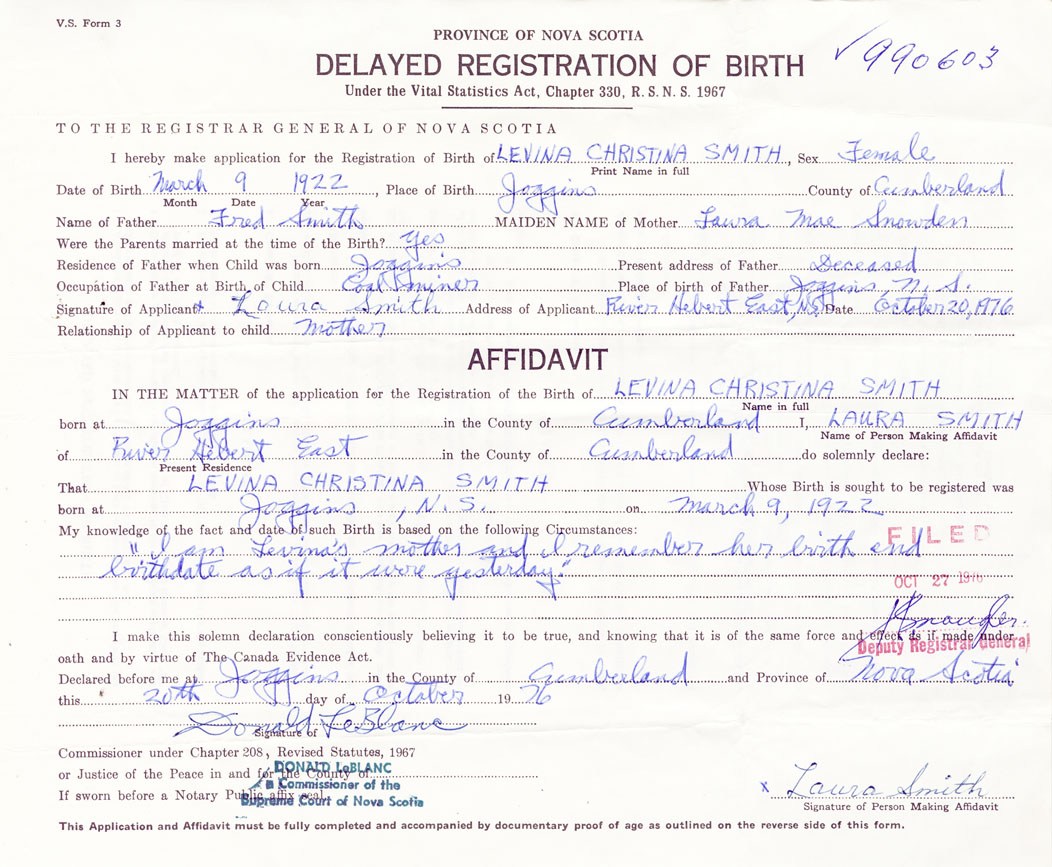 V.S. Form 3
PROVINCE OF NOVA SCOTIA
✓990603
DELAYED REGISTRATION OF BIRTH
Under the Vital Statistics Act, Chapter 330, R.S.N.S. 1967
TO THE REGISTRAR GENERAL OF NOVA SCOTIA
I hereby make application for the Registration of Birth of LEVINA CHRISTINA SMITH, Sex Female
Print Name in full
Date of Birth March 9 1922, Place of Birth Joggins County of Cumberland
Month Date Year
Name of Father Fred Smith MAIDEN NAME of Mother Laura Mae Snowden
Were the Parents married at the time of the Birth? Yes
Residence of Father when Child was born Joggins Present address of Father Deceased
Occupation of Father at Birth of Child Coal miner Place of birth of Father Joggins, N.S.
Signature of Applicant x Laura Smith Address of Applicant River Hebert East, NS Date October 20, 1976
Relationship of Applicant to child mother
AFFIDAVIT
IN THE MATTER of the application for the Registration of the Birth of LEVINA CHRISTINA SMITH
Name in full
born at Joggins in the County of Cumberland I, LAURA SMITH
Name of Person Making Affidavit
of River Hebert East in the County of Cumberland do solemnly declare:
Present Residence
That LEVINA CHRISTINA SMITH Whose Birth is sought to be registered was
born at Joggins, N.S. on March 9, 1922
My knowledge of the fact and date of such Birth is based on the following Circumstances:
"I am Levina's mother and I remember her birth and
birthdate as if it were yesterday."
FILED
OCT 27 1976
Deputy Registrar General
I make this solemn declaration conscientiously believing it to be true, and knowing that it is of the same force and effect as if made under
oath and by virtue of The Canada Evidence Act.
Declared before me at Joggins in the County of Cumberland and Province of Nova Scotia
this 20th day of October 1976
Donald LeBlanc
Signature of
Commissioner under Chapter 208, Revised Statutes, 1967
or Justice of the Peace in and for the County of
If sworn before a Notary Public affix seal
DONALD LeBLANC
A Commissioner of the
Supreme Court of Nova Scotia
x Laura Smith
Signature of Person Making Affidavit
This Application and Affidavit must be fully completed and accompanied by documentary proof of age as outlined on the reverse side of this form.